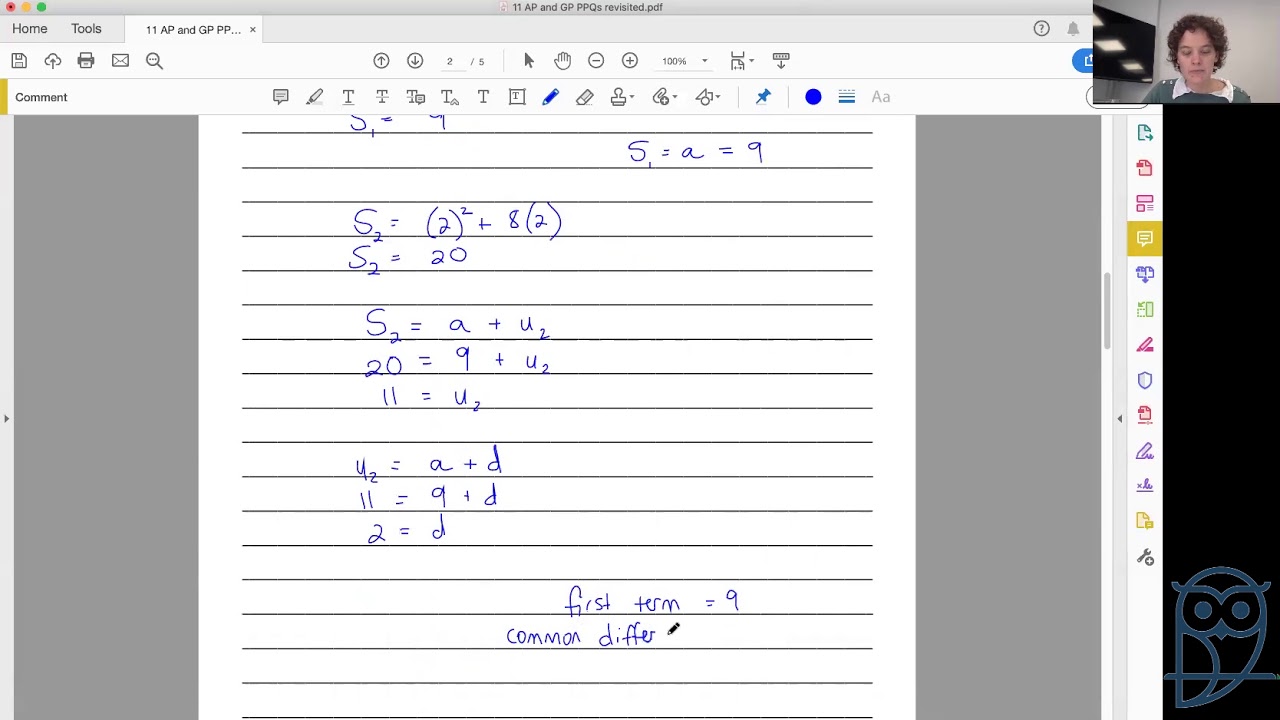 11 AP and GP PPQs revisited.pdf
Home Tools 11 AP and GP PP... ×
2 / 5 100%
Comment Aa
S₁ = 9
S₁ = a = 9
S₂ = (2)² + 8(2)
S₂ = 20
S₂ = a + u₂
20 = 9 + u₂
11 = u₂
u₂ = a + d
11 = 9 + d
2 = d
first term = 9
common differ